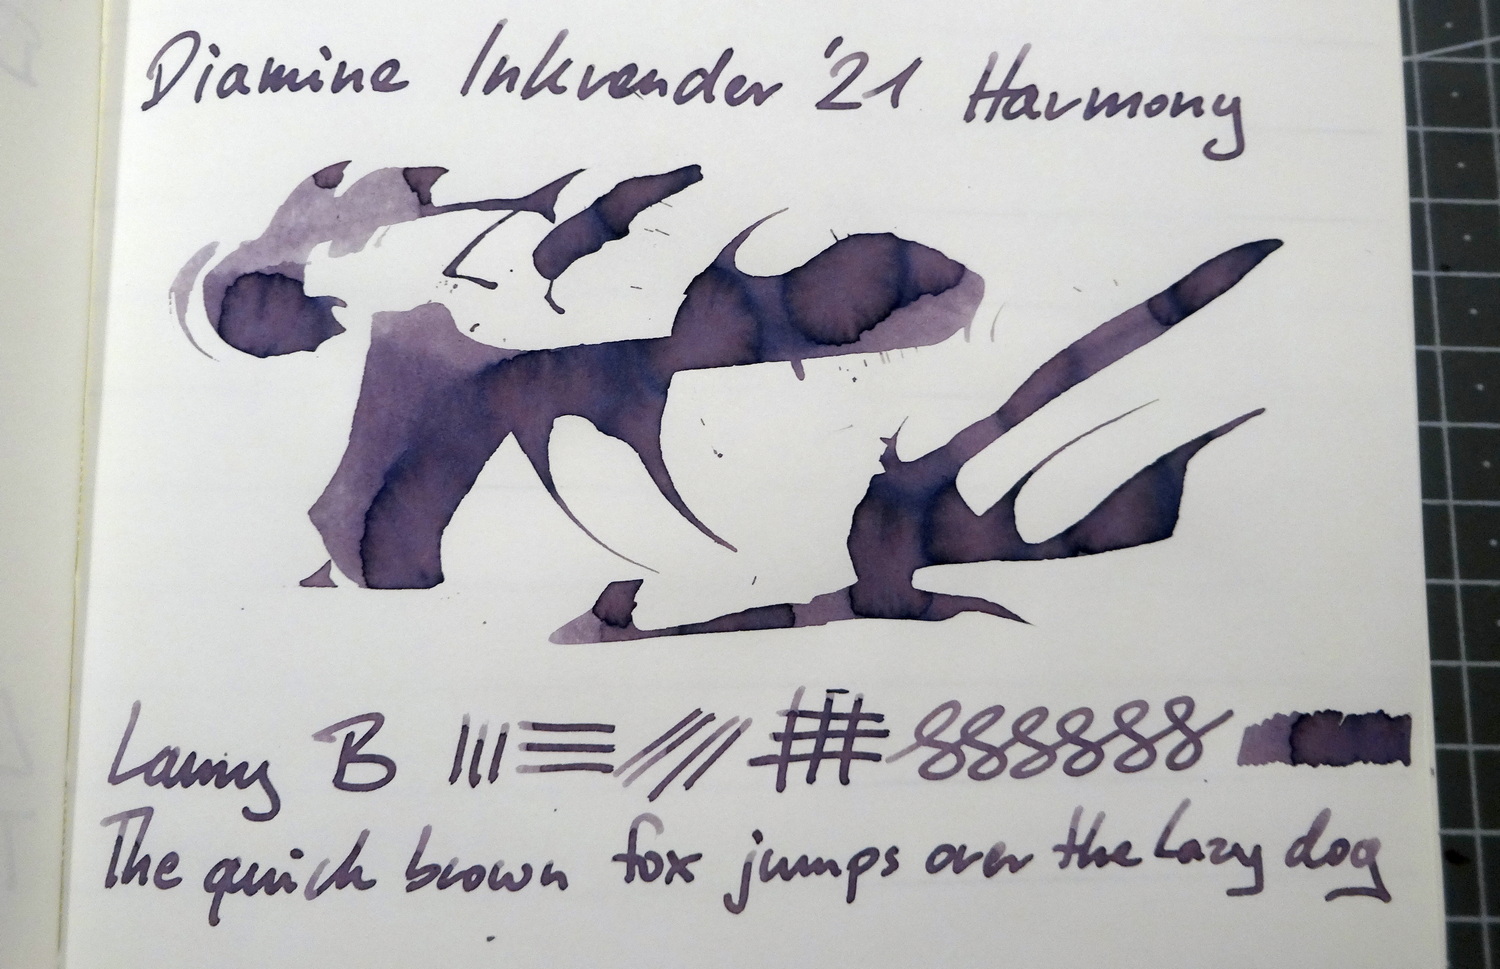 Diamine Inkvender '21 Harmony
Lamy B
The quick brown fox jumps over the Lazy dog